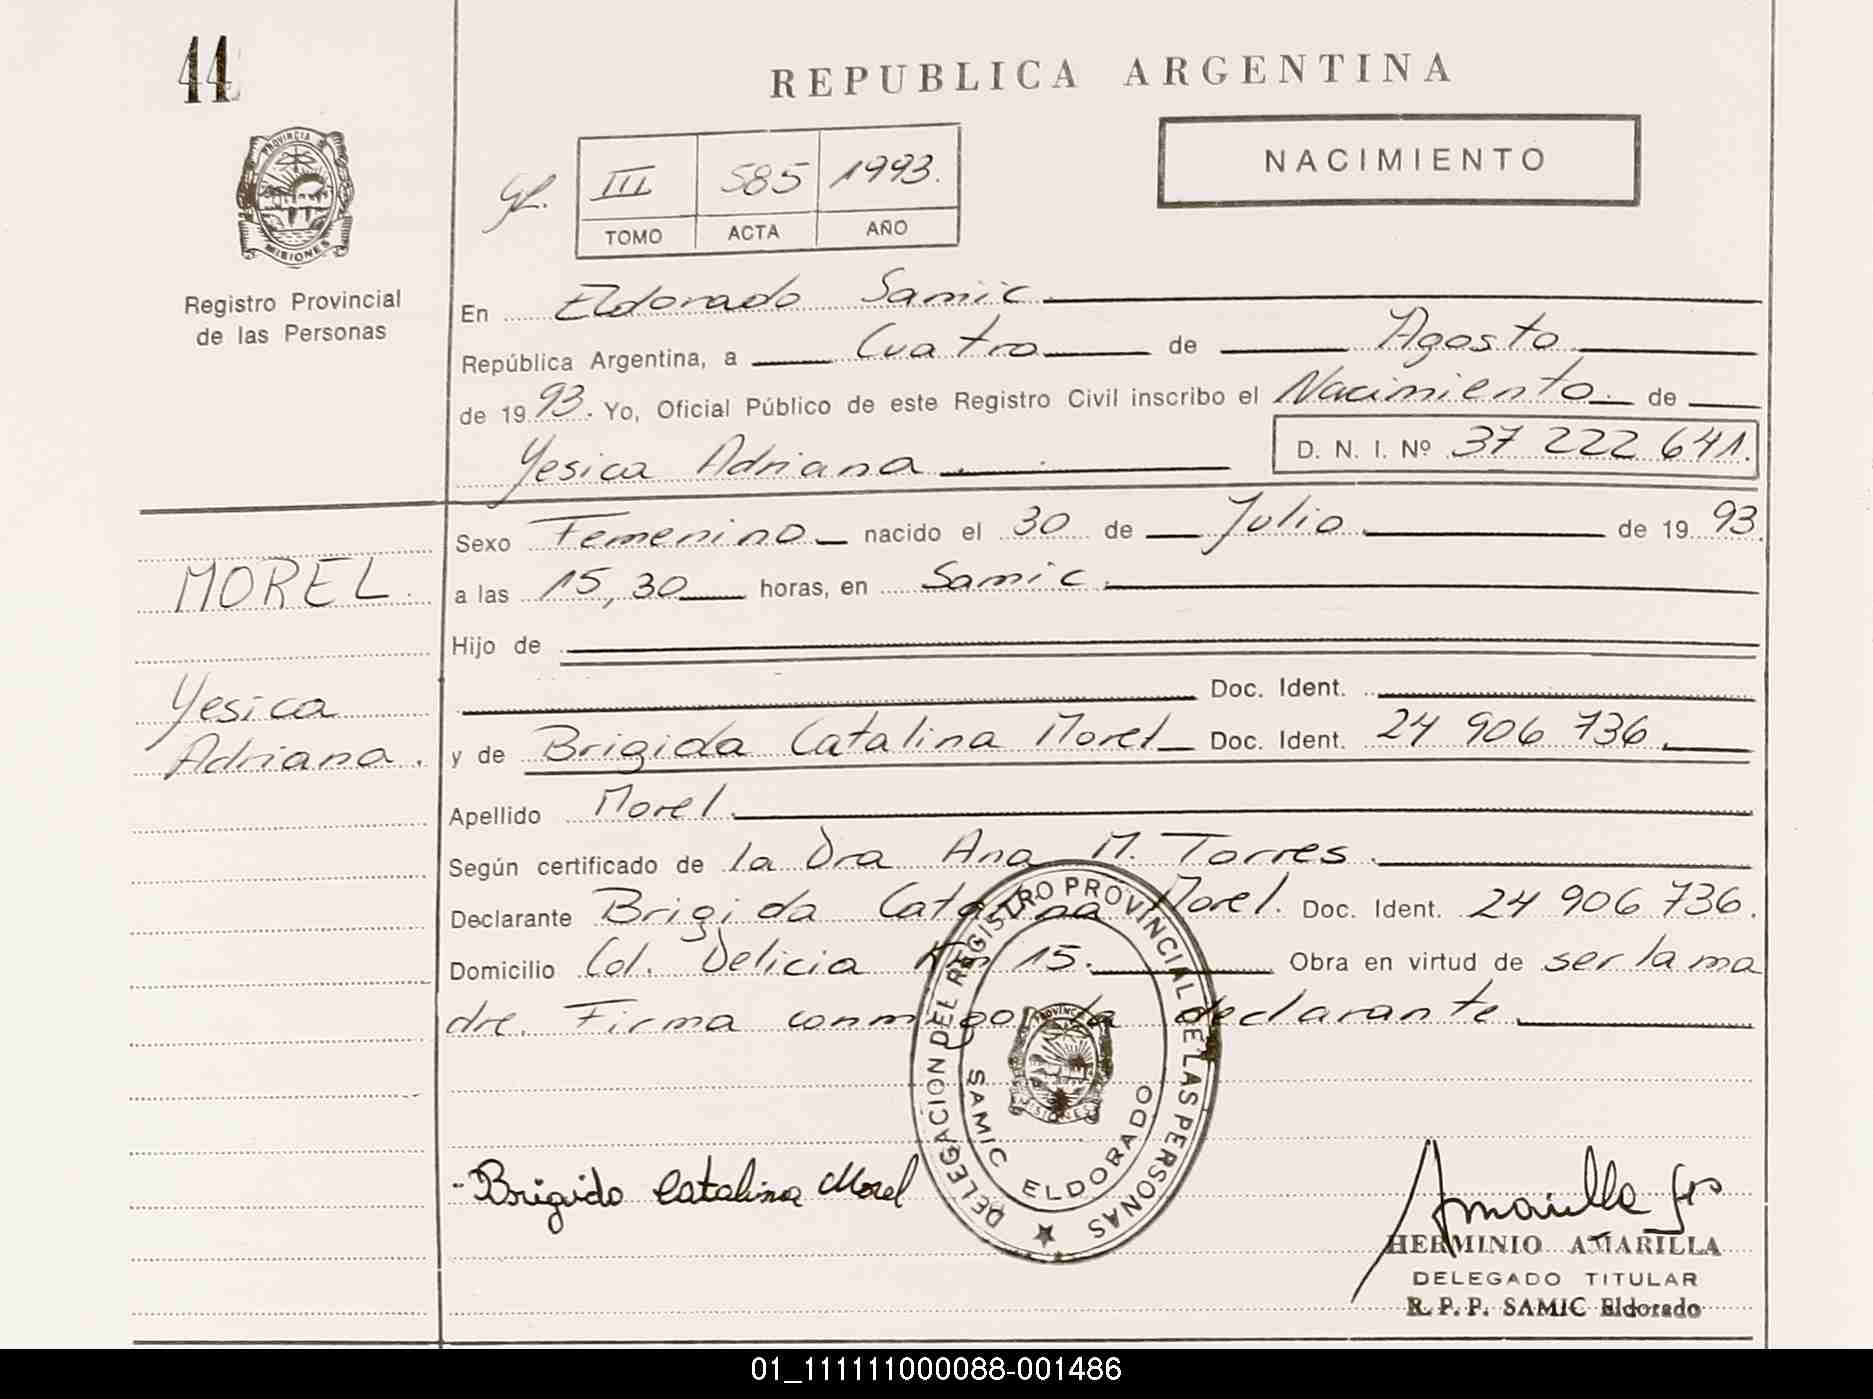 44
REPUBLICA ARGENTINA
PROVINCIA
MISIONES
Registro Provincial
de las Personas
III 585 1993.
TOMO ACTA AÑO
NACIMIENTO
En Eldorado Samic
República Argentina, a Cuatro de Agosto
de 1993. Yo, Oficial Público de este Registro Civil inscribo el Nacimiento de
Yesica Adriana D. N. I. Nº 37 222 641.
Sexo Femenino nacido el 30 de Julio de 1993.
MOREL.
a las 15,30 horas, en Samic.
Hijo de
Doc. Ident.
Yesica
Adriana.
y de Brigida Catalina Morel Doc. Ident. 24 906 736.
Apellido Morel.
Según certificado de la Dra Ana M. Torres.
Declarante Brigida Catalina Morel. Doc. Ident. 24 906 736.
Domicilio Col. Delicia Km 15. Obra en virtud de ser la ma
dre. Firma conmigo la declarante.
DELEGACION DEL REGISTRO PROVINCIAL DE LAS PERSONAS
SAMIC ELDORADO
PROVINCIA
MISIONES
Brigido Catalina Morel
Amarilla
HERMINIO AMARILLA
DELEGADO TITULAR
R. P. P. SAMIC Eldorado
01_111111000088-001486